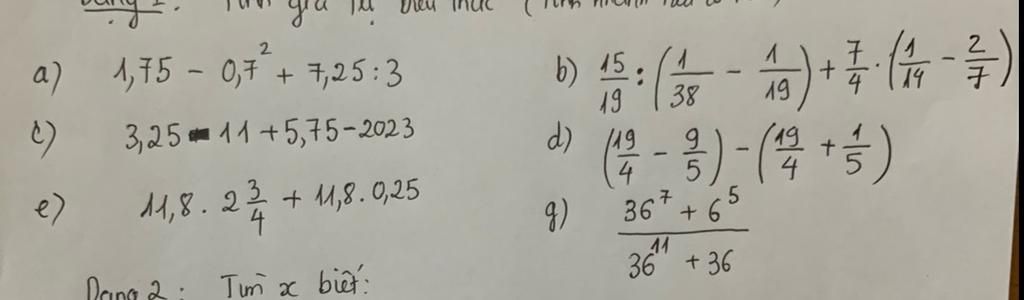 Dạng 1: Tính giá trị biểu thức (Tính nhanh nếu có thể)
a) 1,75 - 0,7² + 7,25 : 3
b) 15/19 : (1/38 - 1/19) + 7/4 . (1/14 - 2/7)
c) 3,25 - 11 + 5,75 - 2023
d) (19/4 - 9/5) - (19/4 + 1/5)
e) 11,8 . 2 3/4 + 11,8 . 0,25
g) (36⁷ + 6⁵)/(36¹¹ + 36)
Dạng 2: Tìm x biết: